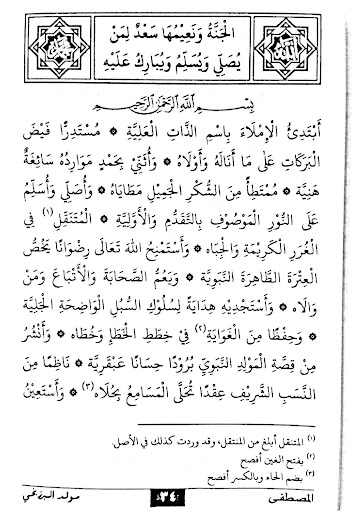 الْجَنَّةُ وَنَعِيمُهَا سَعْدٌ لِمَنْ
يُصَلِّي وَيُسَلِّمُ وَيُبَارِكُ عَلَيْهِ
بِسْمِ اللَّهِ الرَّحْمَٰنِ الرَّحِيمِ
أَبْتَدِئُ الْإِمْلَاءَ بِاسْمِ الذَّاتِ الْعَلِيَّةِ ۞ مُسْتَدِرًّا فَيْضَ
الْبَرَكَاتِ عَلَى مَا أَنَالَهُ وَأَوْلَاهُ ۞ وَأُثَنِّي بِحَمْدٍ مَوَارِدُهُ سَائِغَةٌ
هَنِيَّة ۞ مُمْتَطِأً مِنَ الشُّكْرِ الْجَمِيلِ مَطَايَاهُ ۞ وَأُصَلِّي وَأُسَلِّمُ
عَلَى النُّورِ الْمَوْصُوفِ بِالتَّقَدُّمِ وَالْأَوَّلِيَّةِ ۞ الْمُتَنَقِّلِ(١) فِي
الْغُرَرِ الْكَرِيمَةِ وَالْجِبَاه ۞ وَأَسْتَمْنِحُ اللهَ تَعَالَى رِضْوَانًا يَخُصُّ
الْعِتْرَةَ الطَّاهِرَةَ النَّبَوِيَّة ۞ وَيَعُمُّ الصَّحَابَةَ وَالْأَتْبَاعَ وَمَنْ
وَالَاه ۞ وَأَسْتَجْدِيهِ هِدَايَةً لِسُلُوكِ السُّبُلِ الْوَاضِحَةِ الْجَلِيَّة
۞ وَحِفْظًا مِنَ الْغَوَايَةِ(٢) فِي خِطَطِ الْخَطَإِ وَخُطَاه ۞ وَأَنْشُرُ
مِنْ قِصَّةِ الْمَوْلِدِ النَّبَوِيِّ بُرُودًا حِسَانًا عَبْقَرِيَّة ۞ نَاظِمًا مِنَ
النَّسَبِ الشَّرِيفِ عِقْدًا تُحَلَّى الْمَسَامِعُ بِحُلَاه(٣) ۞ وَأَسْتَعِينُ
(١) المتنقل أبلغ من المنتقل، وقد وردت كذلك في الأصل.
(٢) بفتح الغين أفصح
(٣) بضم الحاء وبالكسر أفصح
المصطفى ٣٤ مولد البرزنجي